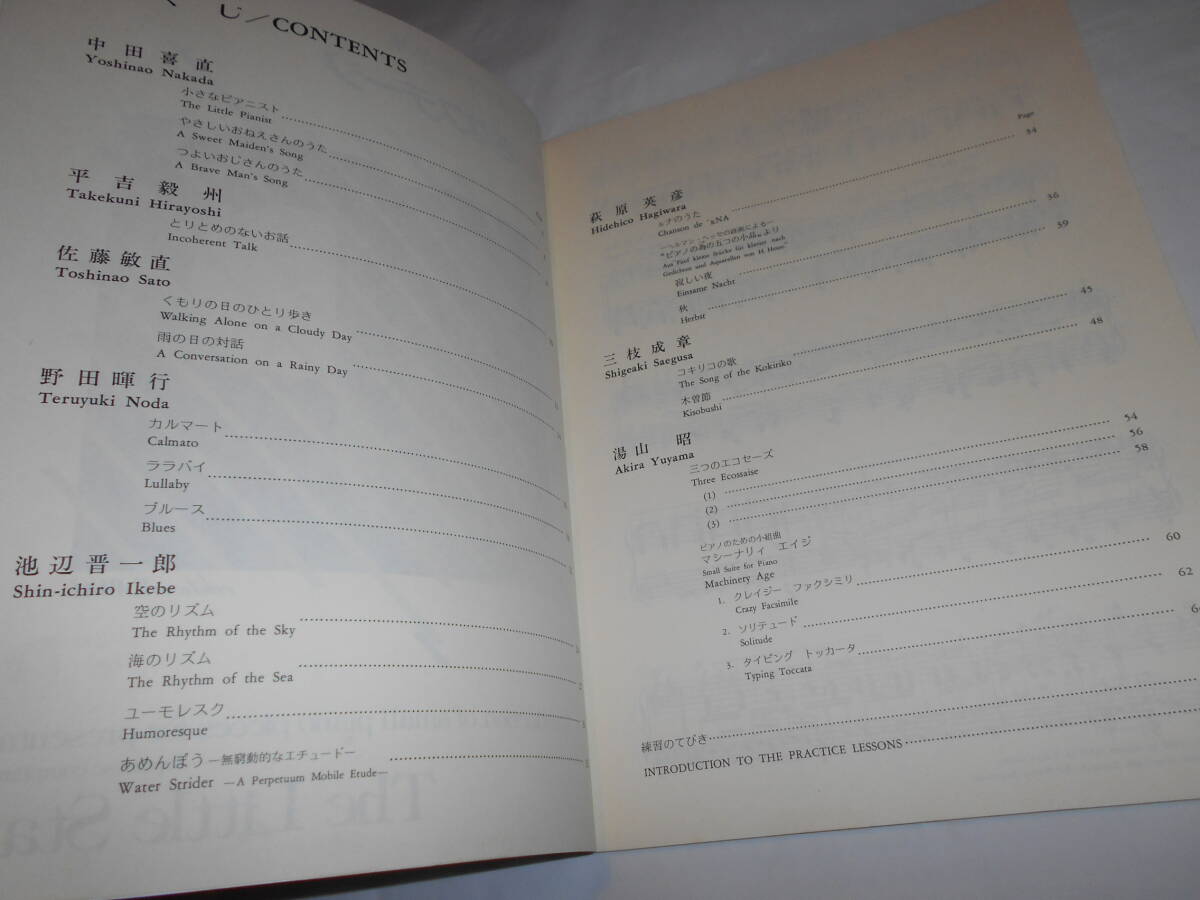 くじ／CONTENTS
中田喜直
Yoshinao Nakada
小さなピアニスト
The Little Pianist
やさしいおねえさんのうた
A Sweet Maiden's Song
つよいおじさんのうた
A Brave Man's Song
平吉毅州
Takekuni Hirayoshi
とりとめのないお話
Incoherent Talk
佐藤敏直
Toshinao Sato
くもりの日のひとり歩き
Walking Alone on a Cloudy Day
雨の日の対話
A Conversation on a Rainy Day
野田暉行
Teruyuki Noda
カルマート
Calmato
ララバイ
Lullaby
ブルース
Blues
池辺晋一郎
Shin-ichiro Ikebe
空のリズム
The Rhythm of the Sky
海のリズム
The Rhythm of the Sea
ユーモレスク
Humoresque
あめんぼう―無窮動的なエチュード―
Water Strider —A Perpetuum Mobile Etude—
Page
萩原英彦
Hidehico Hagiwara
ルナのうた 34
Chanson de
―ヘルマン・ヘッセの詩画による―
"ピアノの為の五つの小品"より
Aus Fünf kleine Stücke für klavier nach
Gedichten und Aquarellen von H. Hesse
寂しい夜 36
Einsame Nacht
秋 39
Herbst
三枝成章
Shigeaki Saegusa
コキリコの歌 45
The Song of the Kokiriko
木曽節 48
Kisobushi
湯山昭
Akira Yuyama
三つのエコセーズ
Three Ecossaise
(1) 54
(2) 56
(3) 58
ピアノのための小組曲
マシーナリィ エイジ
Small Suite for Piano
Machinery Age
1. クレイジー ファクシミリ 60
Crazy Facsimile
2. ソリテュード 62
Solitude
3. タイピング トッカータ
Typing Toccata
練習のてびき
INTRODUCTION TO THE PRACTICE LESSONS